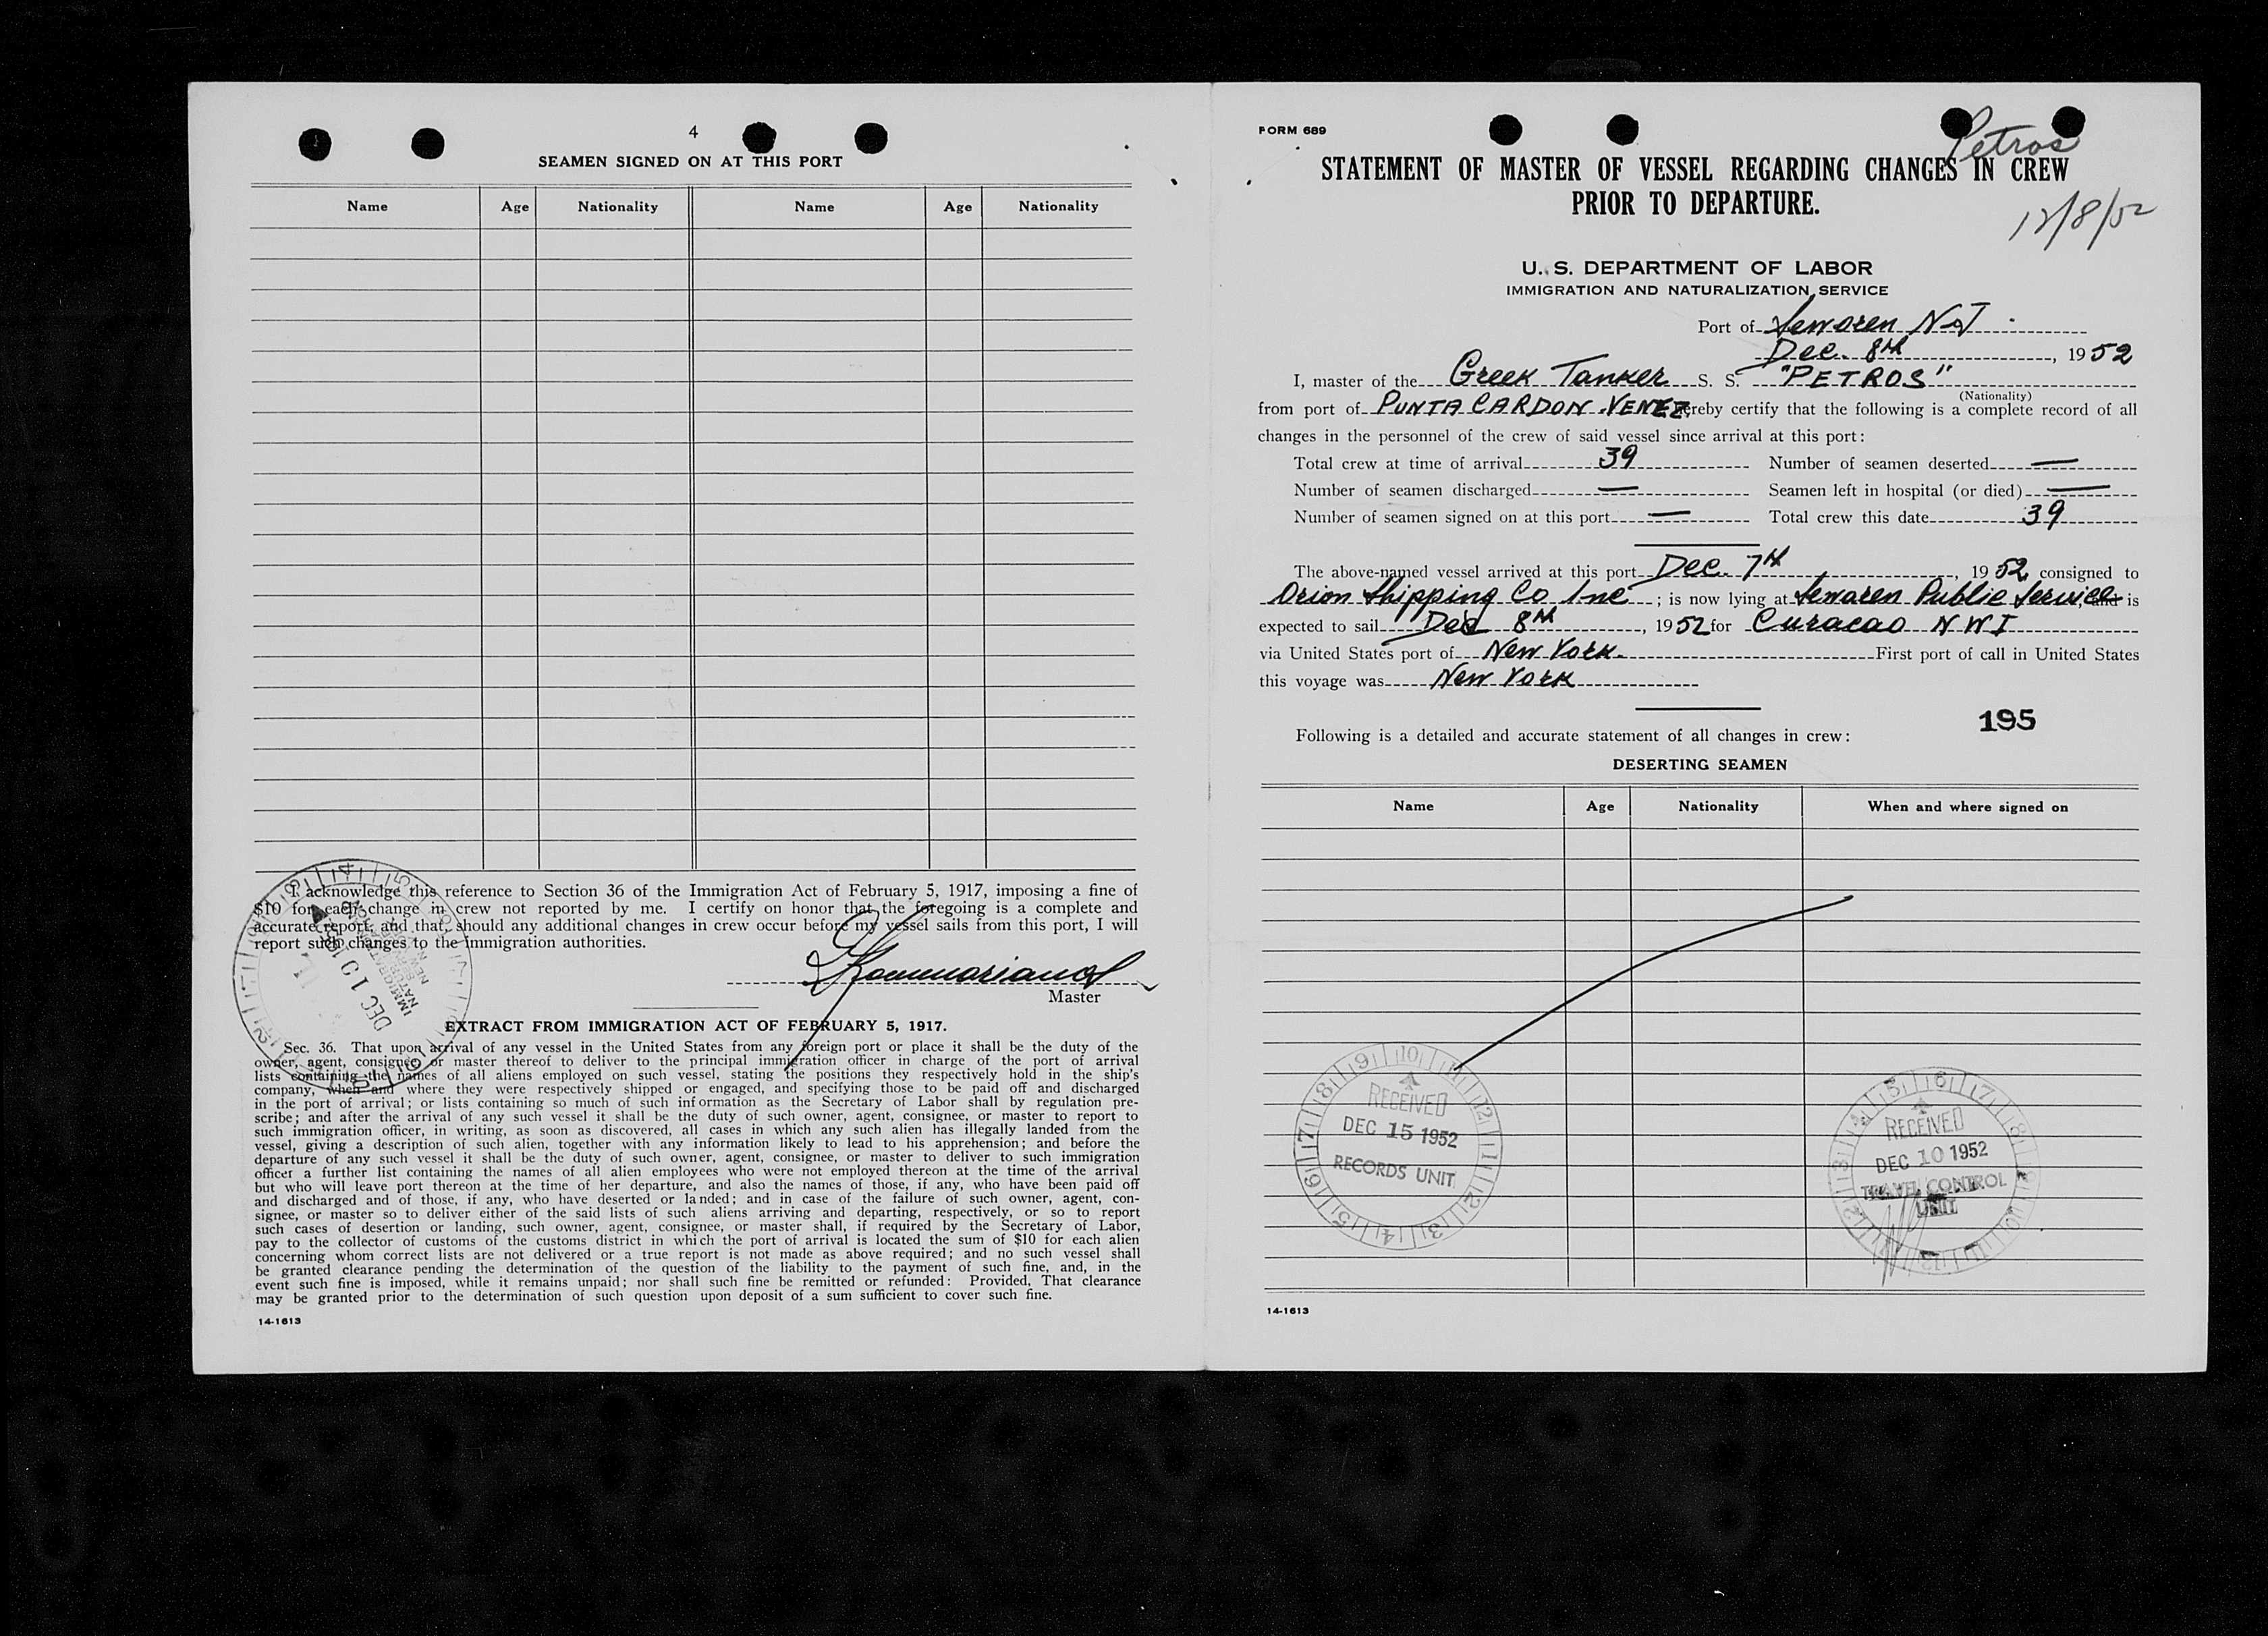 4
SEAMEN SIGNED ON AT THIS PORT
Name Age Nationality Name Age Nationality
I acknowledge this reference to Section 36 of the Immigration Act of February 5, 1917, imposing a fine of
$10 for each change in crew not reported by me. I certify on honor that the foregoing is a complete and
accurate report, and that, should any additional changes in crew occur before my vessel sails from this port, I will
report such changes to the immigration authorities.
Master
DEC 10
EXTRACT FROM IMMIGRATION ACT OF FEBRUARY 5, 1917.
Sec. 36. That upon arrival of any vessel in the United States from any foreign port or place it shall be the duty of the
owner, agent, consignee or master thereof to deliver to the principal immigration officer in charge of the port of arrival
lists containing the names of all aliens employed on such vessel, stating the positions they respectively hold in the ship's
company, when and where they were respectively shipped or engaged, and specifying those to be paid off and discharged
in the port of arrival; or lists containing so much of such information as the Secretary of Labor shall by regulation pre-
scribe; and after the arrival of any such vessel it shall be the duty of such owner, agent, consignee, or master to report to
such immigration officer, in writing, as soon as discovered, all cases in which any such alien has illegally landed from the
vessel, giving a description of such alien, together with any information likely to lead to his apprehension; and before the
departure of any such vessel it shall be the duty of such owner, agent, consignee, or master to deliver to such immigration
officer a further list containing the names of all alien employees who were not employed thereon at the time of the arrival
but who will leave port thereon at the time of her departure, and also the names of those, if any, who have been paid off
and discharged and of those, if any, who have deserted or landed; and in case of the failure of such owner, agent, con-
signee, or master so to deliver either of the said lists of such aliens arriving and departing, respectively, or so to report
such cases of desertion or landing, such owner, agent, consignee, or master shall, if required by the Secretary of Labor,
pay to the collector of customs of the customs district in which the port of arrival is located the sum of $10 for each alien
concerning whom correct lists are not delivered or a true report is not made as above required; and no such vessel shall
be granted clearance pending the determination of the question of the liability to the payment of such fine, and, in the
event such fine is imposed, while it remains unpaid; nor shall such fine be remitted or refunded: Provided, That clearance
may be granted prior to the determination of such question upon deposit of a sum sufficient to cover such fine.
14-1613
FORM 689
Petros
STATEMENT OF MASTER OF VESSEL REGARDING CHANGES IN CREW
PRIOR TO DEPARTURE.
12/8/52
U. S. DEPARTMENT OF LABOR
IMMIGRATION AND NATURALIZATION SERVICE
Port of Sewaren NJ
Dec. 8th, 1952
I, master of the Greek Tanker S. S. "PETROS"
(Nationality)
from port of PUNTA CARDON. VENEZ hereby certify that the following is a complete record of all
changes in the personnel of the crew of said vessel since arrival at this port:
Total crew at time of arrival 39 Number of seamen deserted —
Number of seamen discharged — Seamen left in hospital (or died) —
Number of seamen signed on at this port — Total crew this date 39
The above-named vessel arrived at this port Dec. 7th, 1952, consigned to
Orion Shipping Co Inc; is now lying at Sewaren Public Service, and is
expected to sail Dec 8th, 1952 for Curacao N W I
via United States port of New York. First port of call in United States
this voyage was New York
195
Following is a detailed and accurate statement of all changes in crew:
DESERTING SEAMEN
Name Age Nationality When and where signed on
RECEIVED
DEC 15 1952
RECORDS UNIT
RECEIVED
DEC 10 1952
TRAVEL CONTROL
UNIT
14-1613